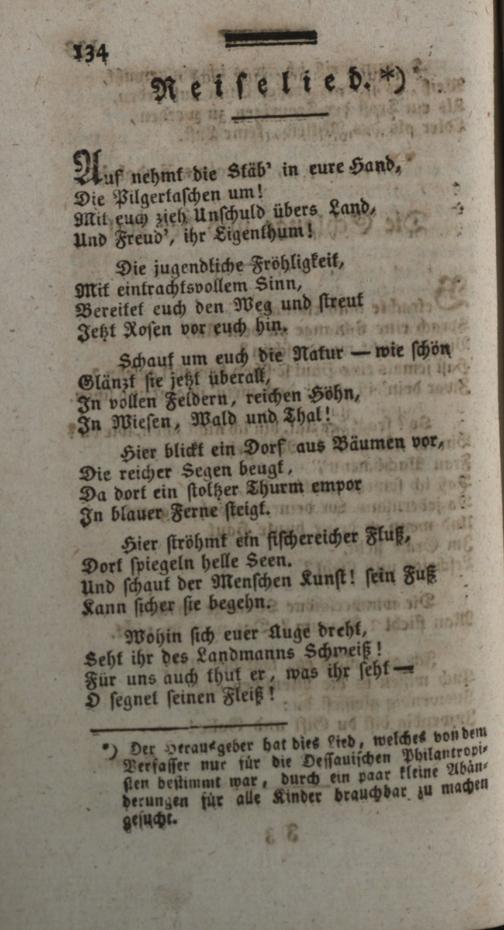 134
Reiselied.*)
Auf nehmt die Stäb' in eure Hand,
Die Pilgertaschen um!
Mit euch zieh Unschuld übers Land,
Und Freud', ihr Eigenthum!
Die jugendliche Fröhligkeit,
Mit eintrachtsvollem Sinn,
Bereitet euch den Weg und streut
Jetzt Rosen vor euch hin.
Schaut um euch die Natur — wie schön
Glänzt sie jetzt überall,
In vollen Feldern, reichen Höhn,
In Wiesen, Wald und Thal!
Hier blickt ein Dorf aus Bäumen vor,
Die reicher Segen beugt,
Da dort ein stoltzer Thurm empor
In blauer Ferne steigt.
Hier ströhmt ein fischereicher Fluß,
Dort spiegeln helle Seen.
Und schaut der Menschen Kunst! sein Fuß
Kann sicher sie begehn.
Wohin sich euer Auge dreht,
Seht ihr des Landmanns Schweiß!
Für uns auch thut er, was ihr seht —
O segnet seinen Fleiß!
*) Der Herausgeber hat dies Lied, welches von dem
Verfasser nur für die Dessauischen Philantropi-
sten bestimmt war, durch ein paar kleine Abän-
derungen für alle Kinder brauchbar zu machen
gesucht.